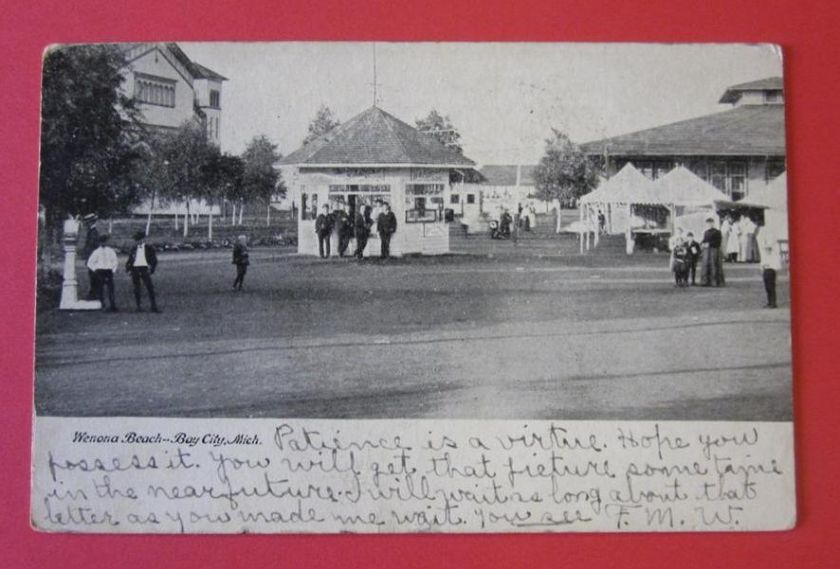 Wenona Beach--Bay City, Mich.
Patience is a virtue. Hope you
possess it. You will get that picture some time
in the near future. I will wait as long about that
letter as you made me wait. You see F. M. W.